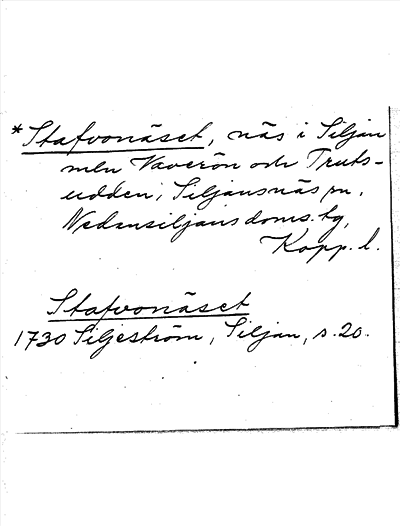 *Stafvonäset, näs i Siljan
mln Vaverön och Truts-
udden, Siljansnäs sn,
Nedansiljans doms. tg,
Kopp. l.
Stafvonäset
1730 Siljeström, Siljan, s. 20.